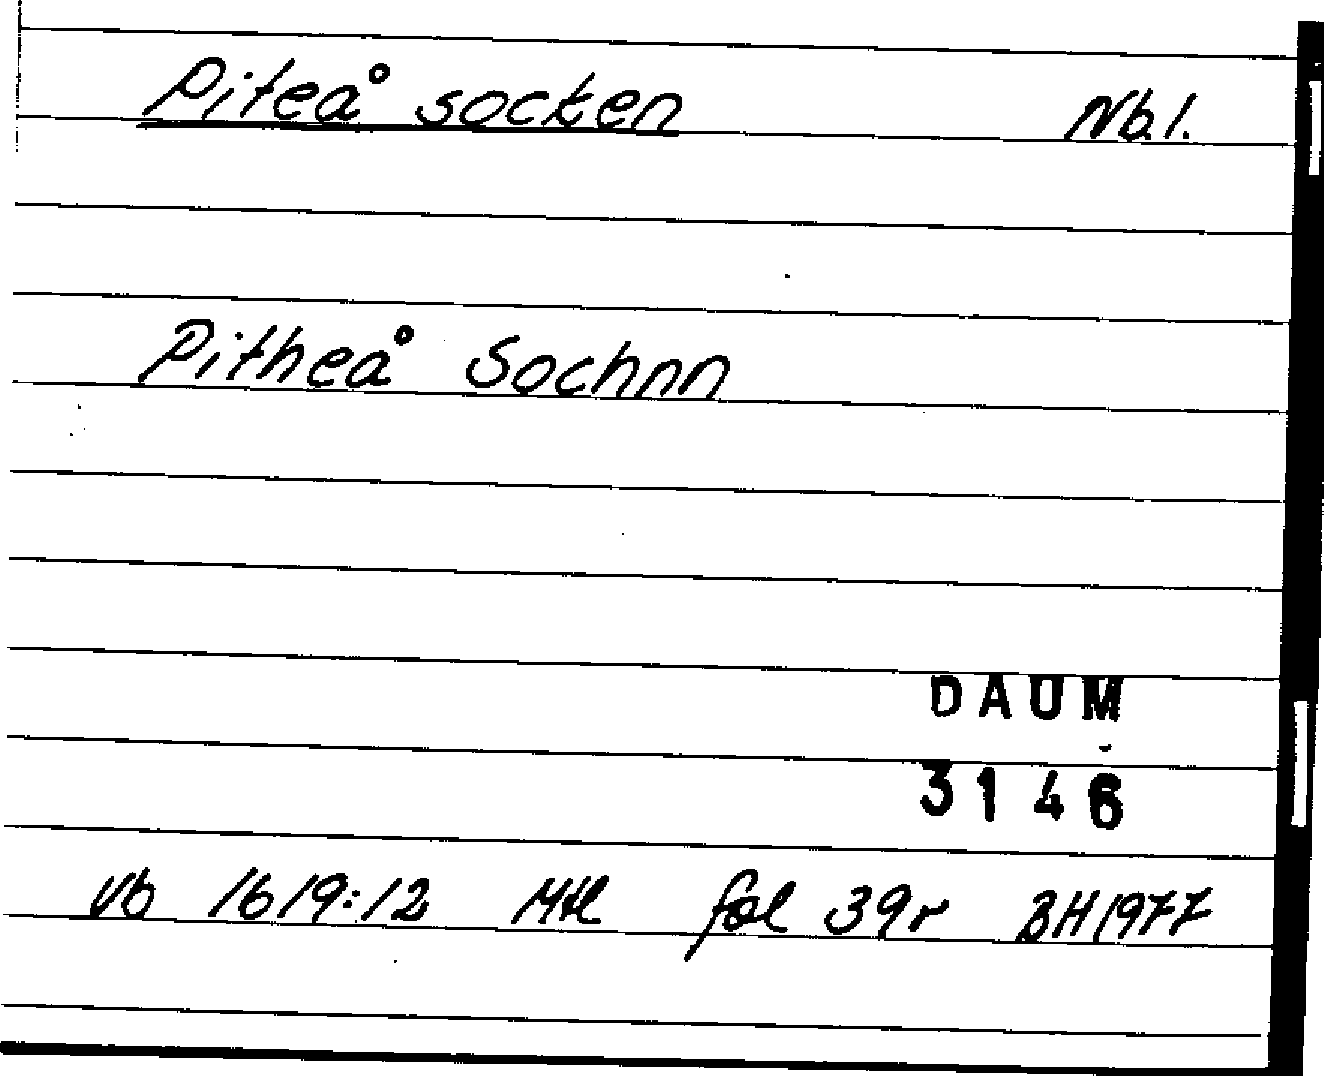 Piteå socken Nb.l.
Pitheå Sochnn
DAUM
3146
Vb 1619:12 Mtl fol 39r BH1977